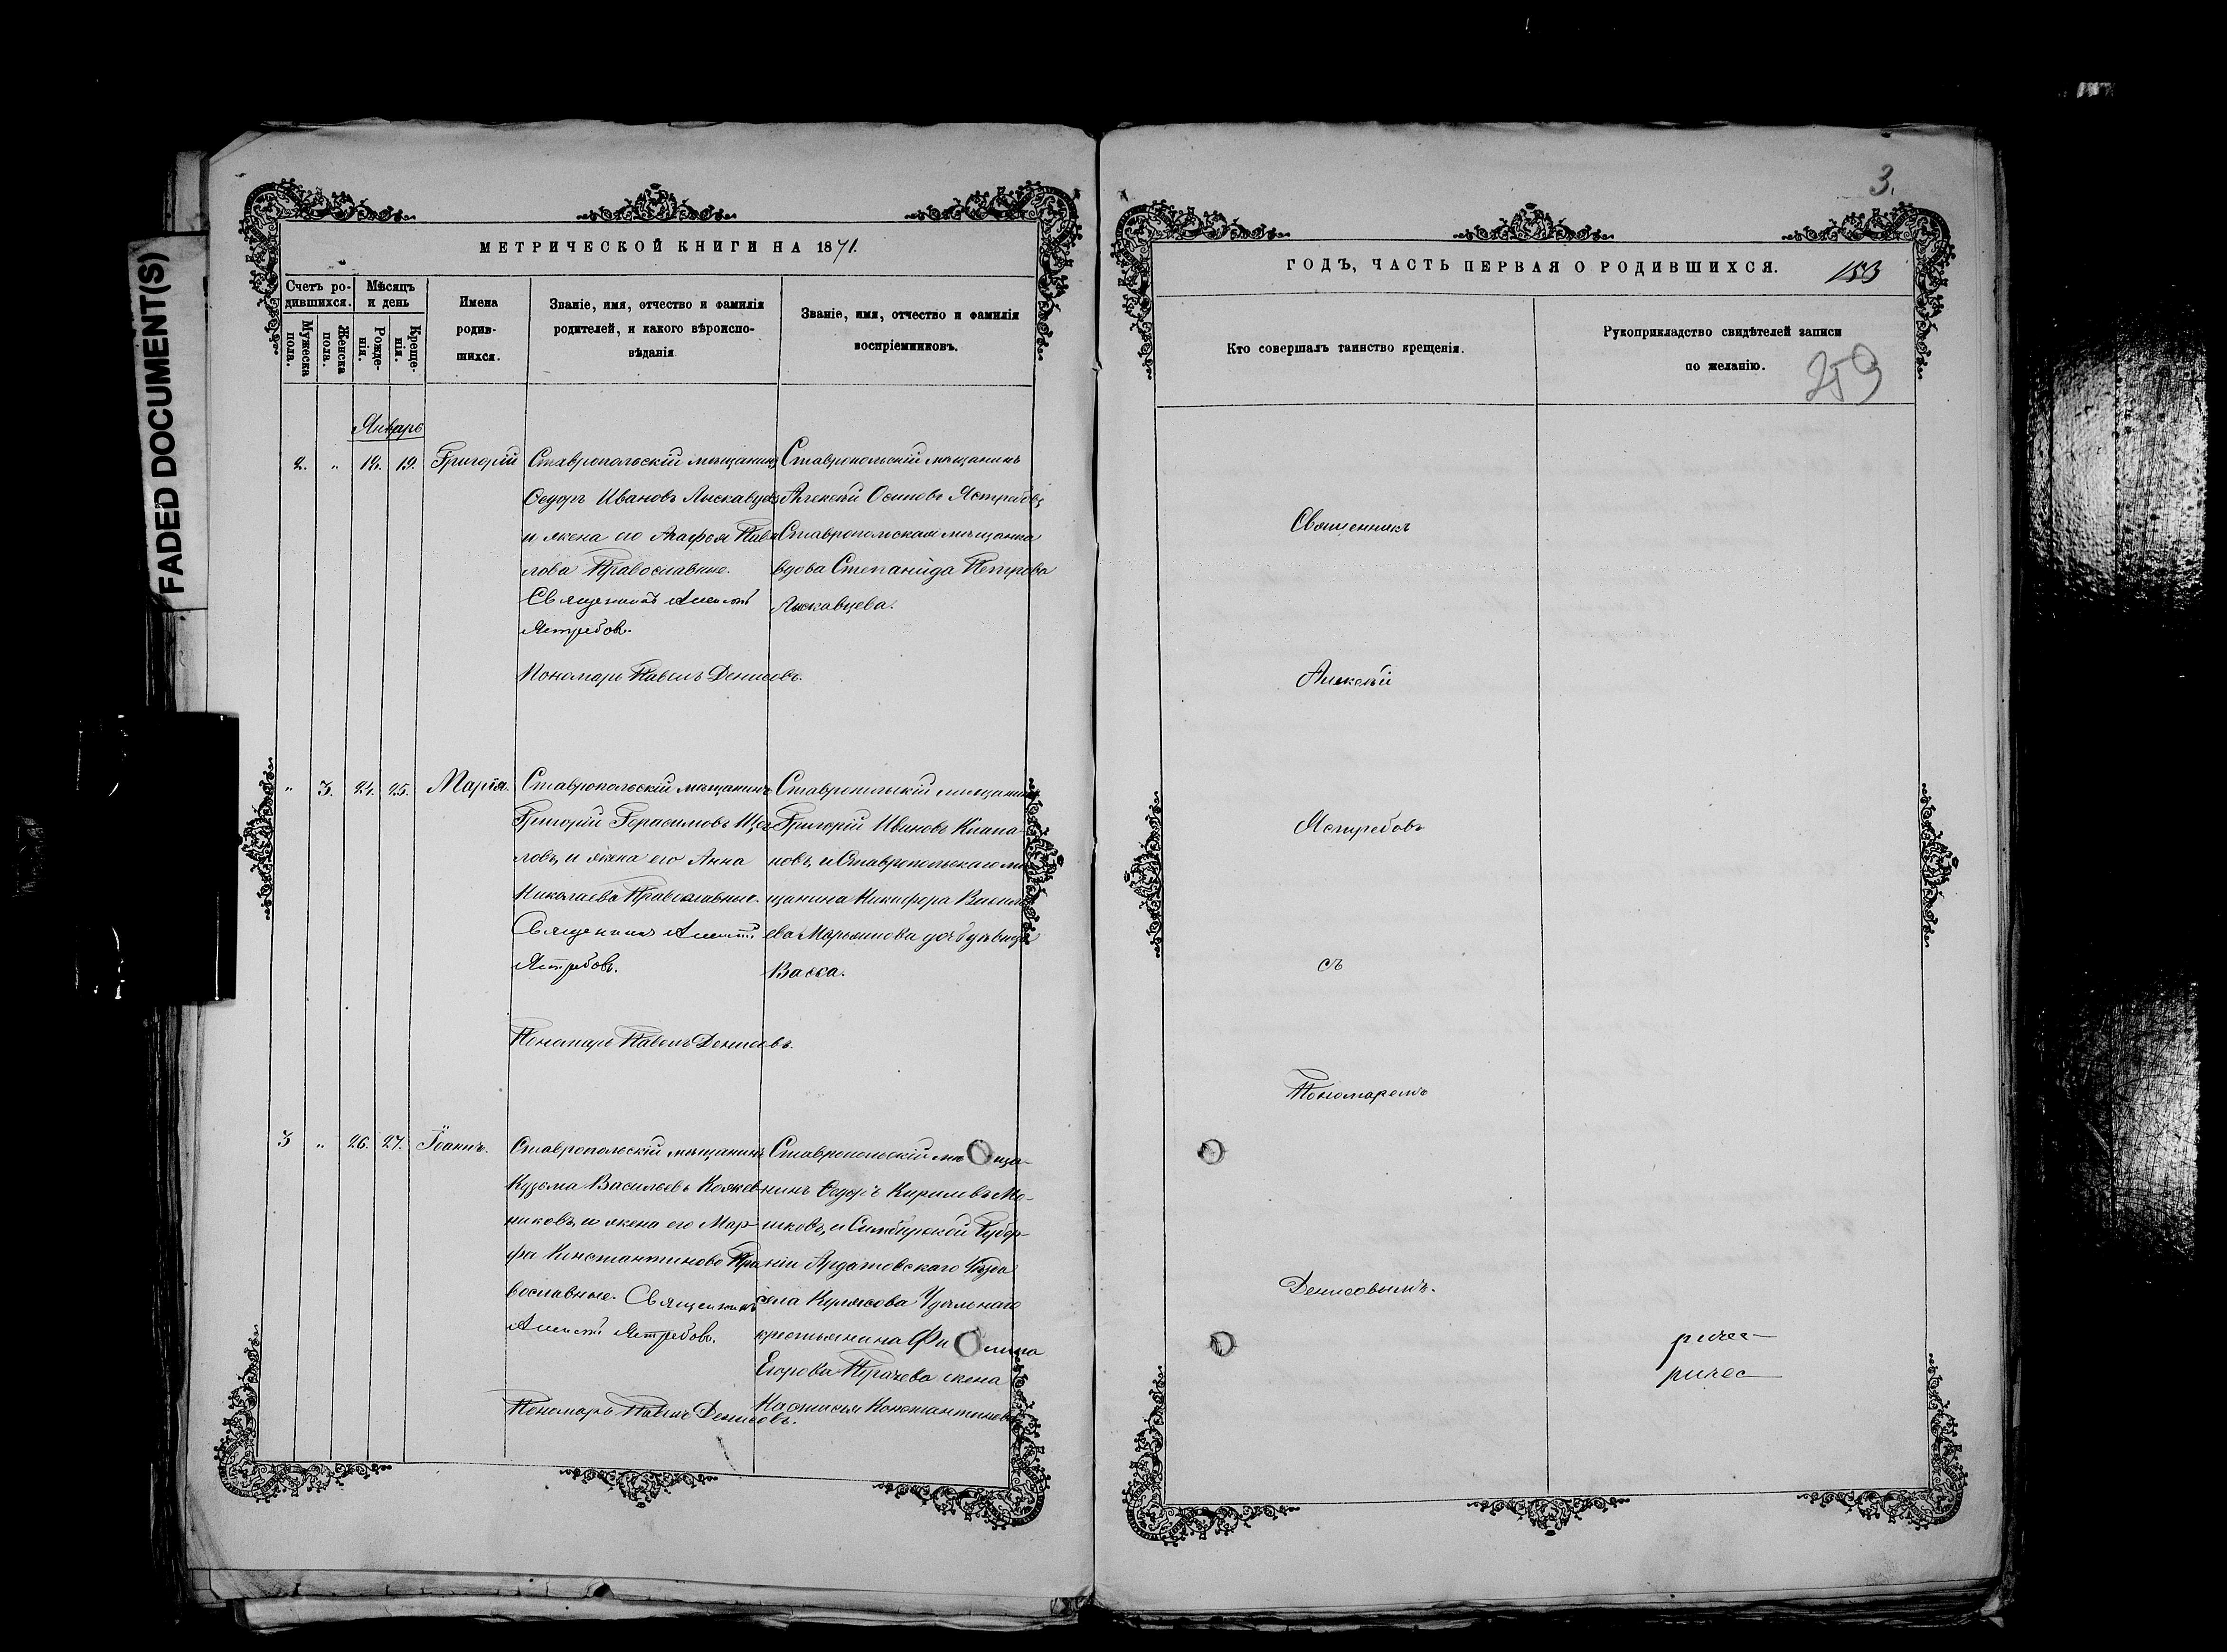 FADED DOCUMENT(S)
МЕТРИЧЕСКОЙ КНИГИ НА 1871.
Счетъ ро-
дившихся.
Мѣсяцъ
и день
Мужеска
пола.
Женска
пола.
Рожде-
нія.
Креще-
нія.
Имена
родив-
шихся.
Званіе, имя, отчество и фамилія
родителей, и какого вѣроиспо-
вѣданія
Званіе, имя, отчество и фамилія
воспріемниковъ.
Январь
2. " 18. 19. Григорій
Ставропольскій мѣщанинъ
Ѳедоръ Ивановъ Лыскавцовъ
и жена его Агафья Пав-
лова Православные.
Священникъ Алексѣй
Ястребовъ.
Пономарь Павелъ Денисовъ.
Ставропольскій мѣщанинъ
Алексѣй Осиповъ Ястребовъ,
Ставропольская мѣщанка
вдова Степанида Петрова
Лыскавцева.
" 3. 24. 25. Марія.
Ставропольскій мѣщанинъ
Григорій Герасимовъ Щег-
ловъ, и жена его Анна
Николаева Православные.
Священникъ Алексѣй
Ястребовъ.
Пономарь Павелъ Денисовъ.
Ставропольскій мѣщанинъ
Григорій Ивановъ
новъ, и Ставропольскаго мѣ-
щанина Никифора Василь-
ева дочь дѣвица
Васса.
3 " 26. 27. Іоаннъ.
Ставропольскій мѣщанинъ
Кузьма Васильевъ Кожев-
никовъ, и жена его Мар-
фа Константинова Пра-
вославные. Священникъ
Алексѣй Ястребовъ.
Пономарь Павелъ Денисовъ.
Ставропольскій мѣща-
нинъ Ѳедоръ Кириловъ Мо-
шковъ, и Симбирской Губер-
ніи Ардатовскаго уѣзда
села Удѣльнаго
крестьянина Филиппа
Егорова жена
Настасья Константинова.
3.
ГОДЪ, ЧАСТЬ ПЕРВАЯ О РОДИВШИХСЯ.
153
Кто совершалъ таинство крещенія.
Рукоприкладство свидѣтелей записи
по желанію.
259
Священникъ
Алексѣй
Ястребовъ
съ
Пономаремъ
Денисовымъ.